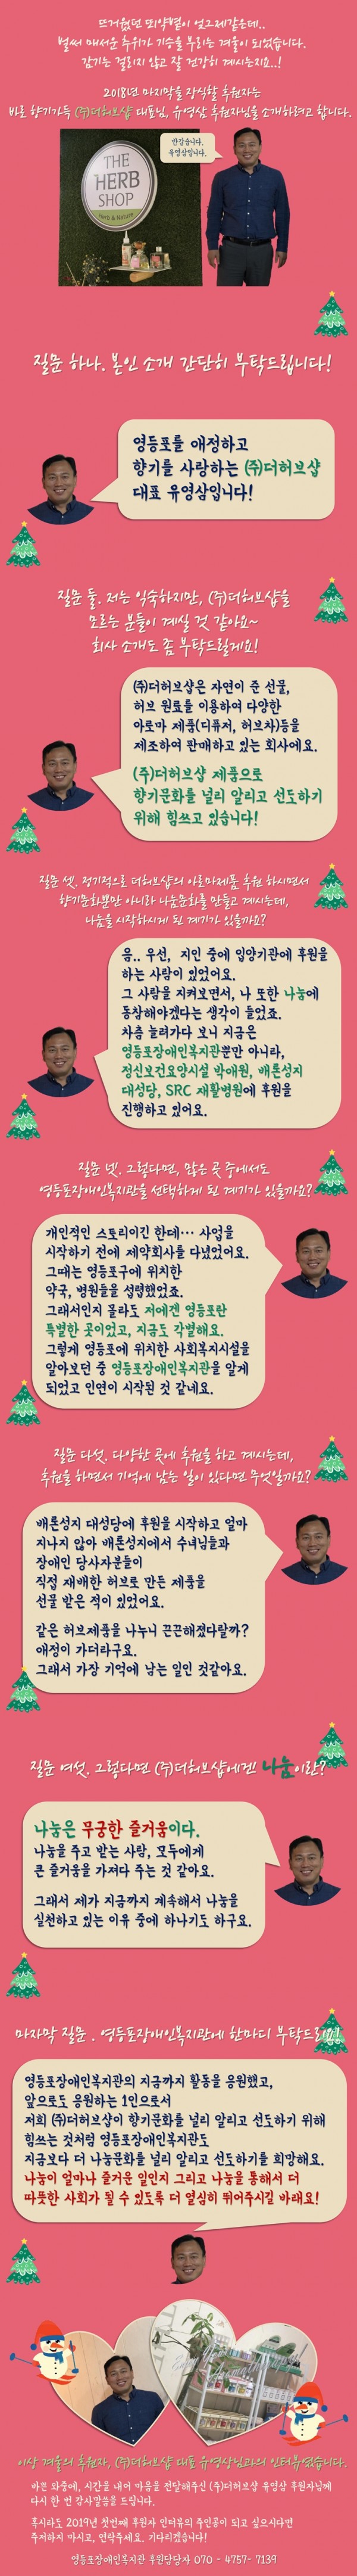 뜨거웠던 뙤약볕이 엊그제같은데..
벌써 매서운 추위가 기승을 부리는 겨울이 되었습니다.
감기는 걸리지 않고 잘 건강히 계시는지요..!
2018년 마지막을 장식할 후원자는
바로 향기가득 (주)더허브샵 대표님, 유영삼 후원자님을 소개하려고 합니다.
반갑습니다.
유영삼입니다.
THE
HERB
SHOP
Herb & Nature
질문 하나. 본인 소개 간단히 부탁드립니다!
영등포를 애정하고
향기를 사랑하는 ㈜더허브샵
대표 유영삼입니다!
질문 둘. 저는 익숙하지만, (주)더허브샵을
모르는 분들이 계실 것 같아요~
회사 소개도 좀 부탁드릴게요!
㈜더허브샵은 자연이 준 선물,
허브 원료를 이용하여 다양한
아로마 제품(디퓨저, 허브차)등을
제조하여 판매하고 있는 회사에요.
(주)더허브샵 제품으로
향기문화를 널리 알리고 선도하기
위해 힘쓰고 있습니다!
질문 셋. 정기적으로 더허브샵의 아로마제품 후원 하시면서
향기문화뿐만 아니라 나눔문화를 만들고 계시는데,
나눔을 시작하시게 된 계기가 있을까요?
음.. 우선, 지인 중에 입양기관에 후원을
하는 사람이 있었어요.
그 사람을 지켜보면서, 나 또한 나눔에
동참해야겠다는 생각이 들었죠.
차츰 늘려가다 보니 지금은
영등포장애인복지관뿐만 아니라,
정신보건요양시설 박애원, 배론성지
대성당, SRC 재활병원에 후원을
진행하고 있어요.
질문 넷. 그렇다면, 많은 곳 중에서도
영등포장애인복지관을 선택하게 된 계기가 있을까요?
개인적인 스토리이긴 한데… 사업을
시작하기 전에 제약회사를 다녔었어요.
그때는 영등포구에 위치한
약국, 병원들을 섭렵했었죠.
그래서인지 몰라도 저에겐 영등포란
특별한 곳이었고, 지금도 각별해요.
그렇게 영등포에 위치한 사회복지시설을
알아보던 중 영등포장애인복지관을 알게
되었고 인연이 시작된 것 같네요.
질문 다섯. 다양한 곳에 후원을 하고 계시는데,
후원을 하면서 기억에 남는 일이 있다면 무엇일까요?
배론성지 대성당에 후원을 시작하고 얼마
지나지 않아 배론성지에서 수녀님들과
장애인 당사자분들이
직접 재배한 허브로 만든 제품을
선물 받은 적이 있었어요.
같은 허브제품을 나누니 끈끈해졌다랄까?
애정이 가더라구요.
그래서 가장 기억에 남는 일인 것같아요.
질문 여섯. 그렇다면 (주)더허브샵에겐! 나눔이란?
나눔은 무궁한 즐거움이다.
나눔을 주고 받는 사람, 모두에게
큰 즐거움을 가져다 주는 것 같아요.
그래서 제가 지금까지 계속해서 나눔을
실천하고 있는 이유 중에 하나기도 하구요.
마지막 질문 . 영등포장애인복지관에 한마디 부탁드려요!
영등포장애인복지관의 지금까지 활동을 응원했고,
앞으로도 응원하는 1인으로서
저희 ㈜더허브샵이 향기문화를 널리 알리고 선도하기 위해
힘쓰는 것처럼 영등포장애인복지관도
지금보다 더 나눔문화를 널리 알리고 선도하기를 희망해요.
나눔이 얼마나 즐거운 일인지 그리고 나눔을 통해서 더
따뜻한 사회가 될 수 있도록 더 열심히 뛰어주시길 바래요!
이상 겨울의 후원자, (주)더허브샵 대표 유영삼님과의 인터뷰였습니다.
바쁜 와중에, 시간을 내어 마음을 전달해주신 (주)더허브샵 유영삼 후원자님께
다시 한 번 감사말씀을 드립니다.
혹시라도 2019년 첫번째 후원자 인터뷰의 주인공이 되고 싶으시다면
주저하지 마시고, 연락주세요. 기다리겠습니다!
영등포장애인복지관 후원담당자 070 - 4757- 7139